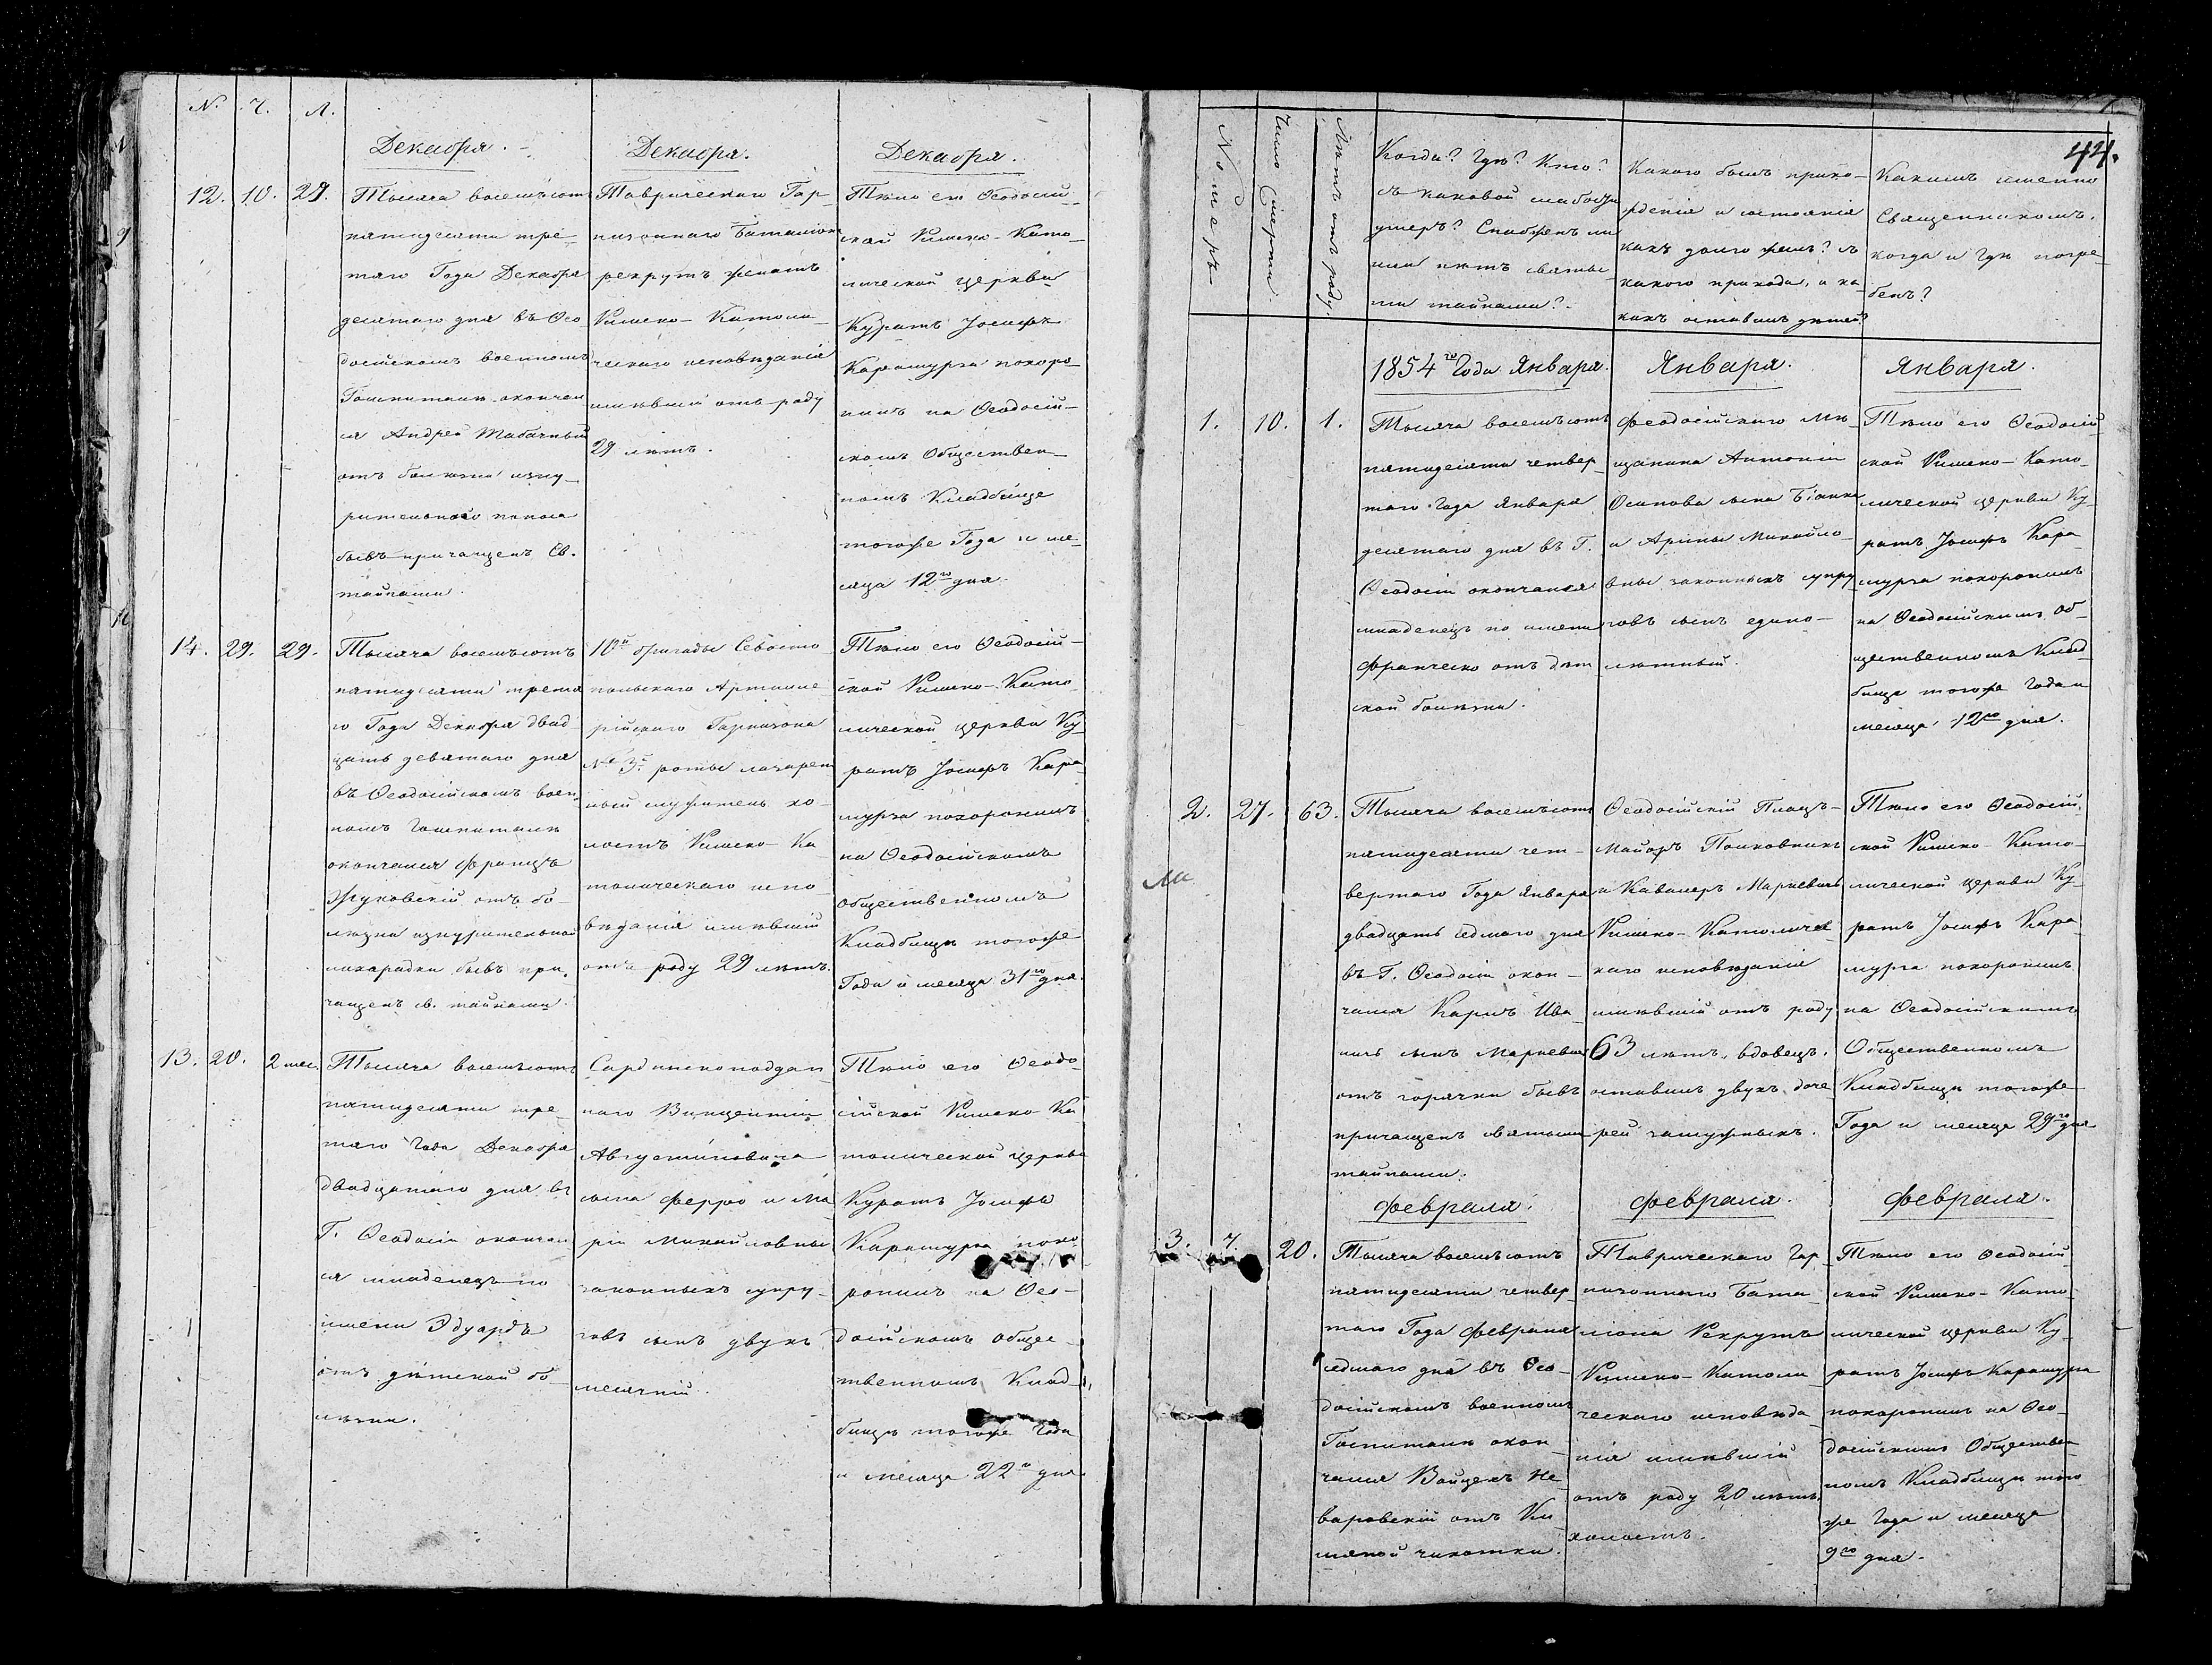 N. Ч. Л.
Декабря.
12. 10. 29.
Тысяча восемьсотъ
пятидесяти тре-
тяго Года Декабря
десятаго дня въ Ѳео
досійскомъ военномъ
Госпиталѣ окончал
ся Андрей Табачный
отъ болѣзни изну-
рительнаго поноса
бывъ причащенъ Св.
тайнами.
Декабря.
Таврическаго Гар-
низоннаго Баталіона
рекрутъ женатъ
Римско-Католи-
ческаго исповѣданія
имѣвшій отъ роду
29 лѣтъ.
Декабря.
Тѣло его Ѳеодосій-
ской Римско-Като-
лической церкви
Куратъ Іосифъ
Карамурза похоро-
нилъ на Ѳеодосій-
скомъ Обществен-
номъ Кладбище
тогоже Года и мѣ-
сяца 12го дня.
14. 29. 29.
Тысяча восемьсотъ
пятидесяти третя
го Года Декабря двад
цать девятаго дня
въ Ѳеодосійскомъ воен-
номъ Гошпиталѣ
окончался Францъ
Жуковскій отъ бо-
лѣзни изнурительной
лихарадки бывъ при-
чащенъ св. тайнами.
10й бригады Севасто
польскаго Артиле
рійскаго Гарнизона
№ 3й роты лазарет
ный служитель хо-
лостъ Римско-Ка
толическаго испо-
вѣданія имѣвшій
отъ роду 29 лѣтъ.
Тѣло его Ѳеодосій-
ской Римско-Като-
лической церкви Ку-
ратъ Іосифъ Кара-
мурза похоронилъ
на Ѳеодосійскомъ
общественномъ
Кладбищѣ тогоже
Года и месяца 31го дня.
13. 20. 2 мес.
Тысяча восемьсотъ
пятидесяти тре-
тяго Года Декабря
двадцатаго дня въ
Г. Ѳеодосіи окончал
ся младенецъ по
имени Эдуардъ
отъ дѣтской бо-
лѣзни.
Сардинскоподдан-
наго Винцентія
Августиновича
сына Ферро и Ма
ріи Михайловны
законныхъ супру-
говъ сынъ двухъ
месячній.
Тѣло его Ѳеодо-
сійской Римско Ка
толической церкви
Куратъ Іосифъ
Карамурза похо
ронилъ на Ѳео-
досійскомъ общес-
твенномъ Клад-
бищѣ тогоже Года
и месяца 22го дня
44.
Номеръ
Число Смерти
Лѣтъ отъ роду
Когда? Гдѣ? Кто?
съ каковой слабости
умеръ? Снабженъ ли
или нѣтъ святы-
ми тайнами?
Какого былъ происхо-
жденія и состоянія
какъ долго жилъ? съ
какого прихода, и ка-
кихъ оставилъ дѣтей?
Какимъ именно
Священникомъ,
когда и гдѣ погре-
бенъ?
1854го Года Января.
1. 10. 1.
Тысяча восемьсотъ
пятидесяти четвер-
таго Года Января
десятаго дня въ Г.
Ѳеодосіи окончался
младенецъ по имени
Франческо отъ дѣт
ской болѣзни.
Января.
Феодосійскаго Мѣ-
щанина Антонія
Осипова сына Біанки
и Арины Михайло-
вны законныхъ супру
говъ сынъ едино-
лѣтный.
Января.
Тѣло его Ѳеодосій-
ской Римско-Като-
лической церкви Ку-
ратъ Іосифъ Кара-
мурза похоронилъ
на Ѳеодосійскимъ Об-
щественномъ Клад-
бище тогоже Года и
месяца 12го дня.
2. 27. 63.
Тысяча восемьсотъ
пятидесяти чет-
вертаго Года Января
двадцать седмаго дня
въ Г. Ѳеодосіи окон-
чался Карлъ Ива-
новъ сынъ Маркевичъ
отъ горячки бывъ
причащенъ святыми
тайнами.
Ѳеодосійскій Плацъ-
Маіоръ Полковникъ
и Кавалеръ Маркевичъ
Римско-Католичес-
каго исповѣданія
имѣвшій отъ роду
63 лѣтъ, вдовецъ.
оставилъ двухъ доче
рей замужныхъ.
Тѣло его Ѳеодосій-
ской Римско-Като-
лической церкви Ку-
ратъ Іосифъ Кара-
мурза похоронилъ
на Ѳеодосійскимъ
Общественномъ
Кладбищѣ тогоже
Года и месяца 29го дня
Февраля.
3. 7. 20.
Тысяча восемьсотъ
пятидесяти четвер-
таго Года Февраля
седмаго дня въ Ѳео-
досійскомъ военномъ
Госпиталѣ окон-
чался Войцехъ Не-
варовскій отъ
чихотки.
Февраля.
Таврическаго Гар-
низоннаго Бата-
ліона Рекрутъ
Римско-Католи-
ческаго исповѣда-
нія имѣвшій
отъ роду 20 лѣтъ.
холостъ.
Февраля.
Тѣло его Ѳеодосій-
ской Римско-Като-
лической церкви Ку-
ратъ Іосифъ Карамурза
похоронилъ на Ѳео-
досійскимъ Обществен-
номъ Кладбищѣ того
же Года и месяца
9го дня.